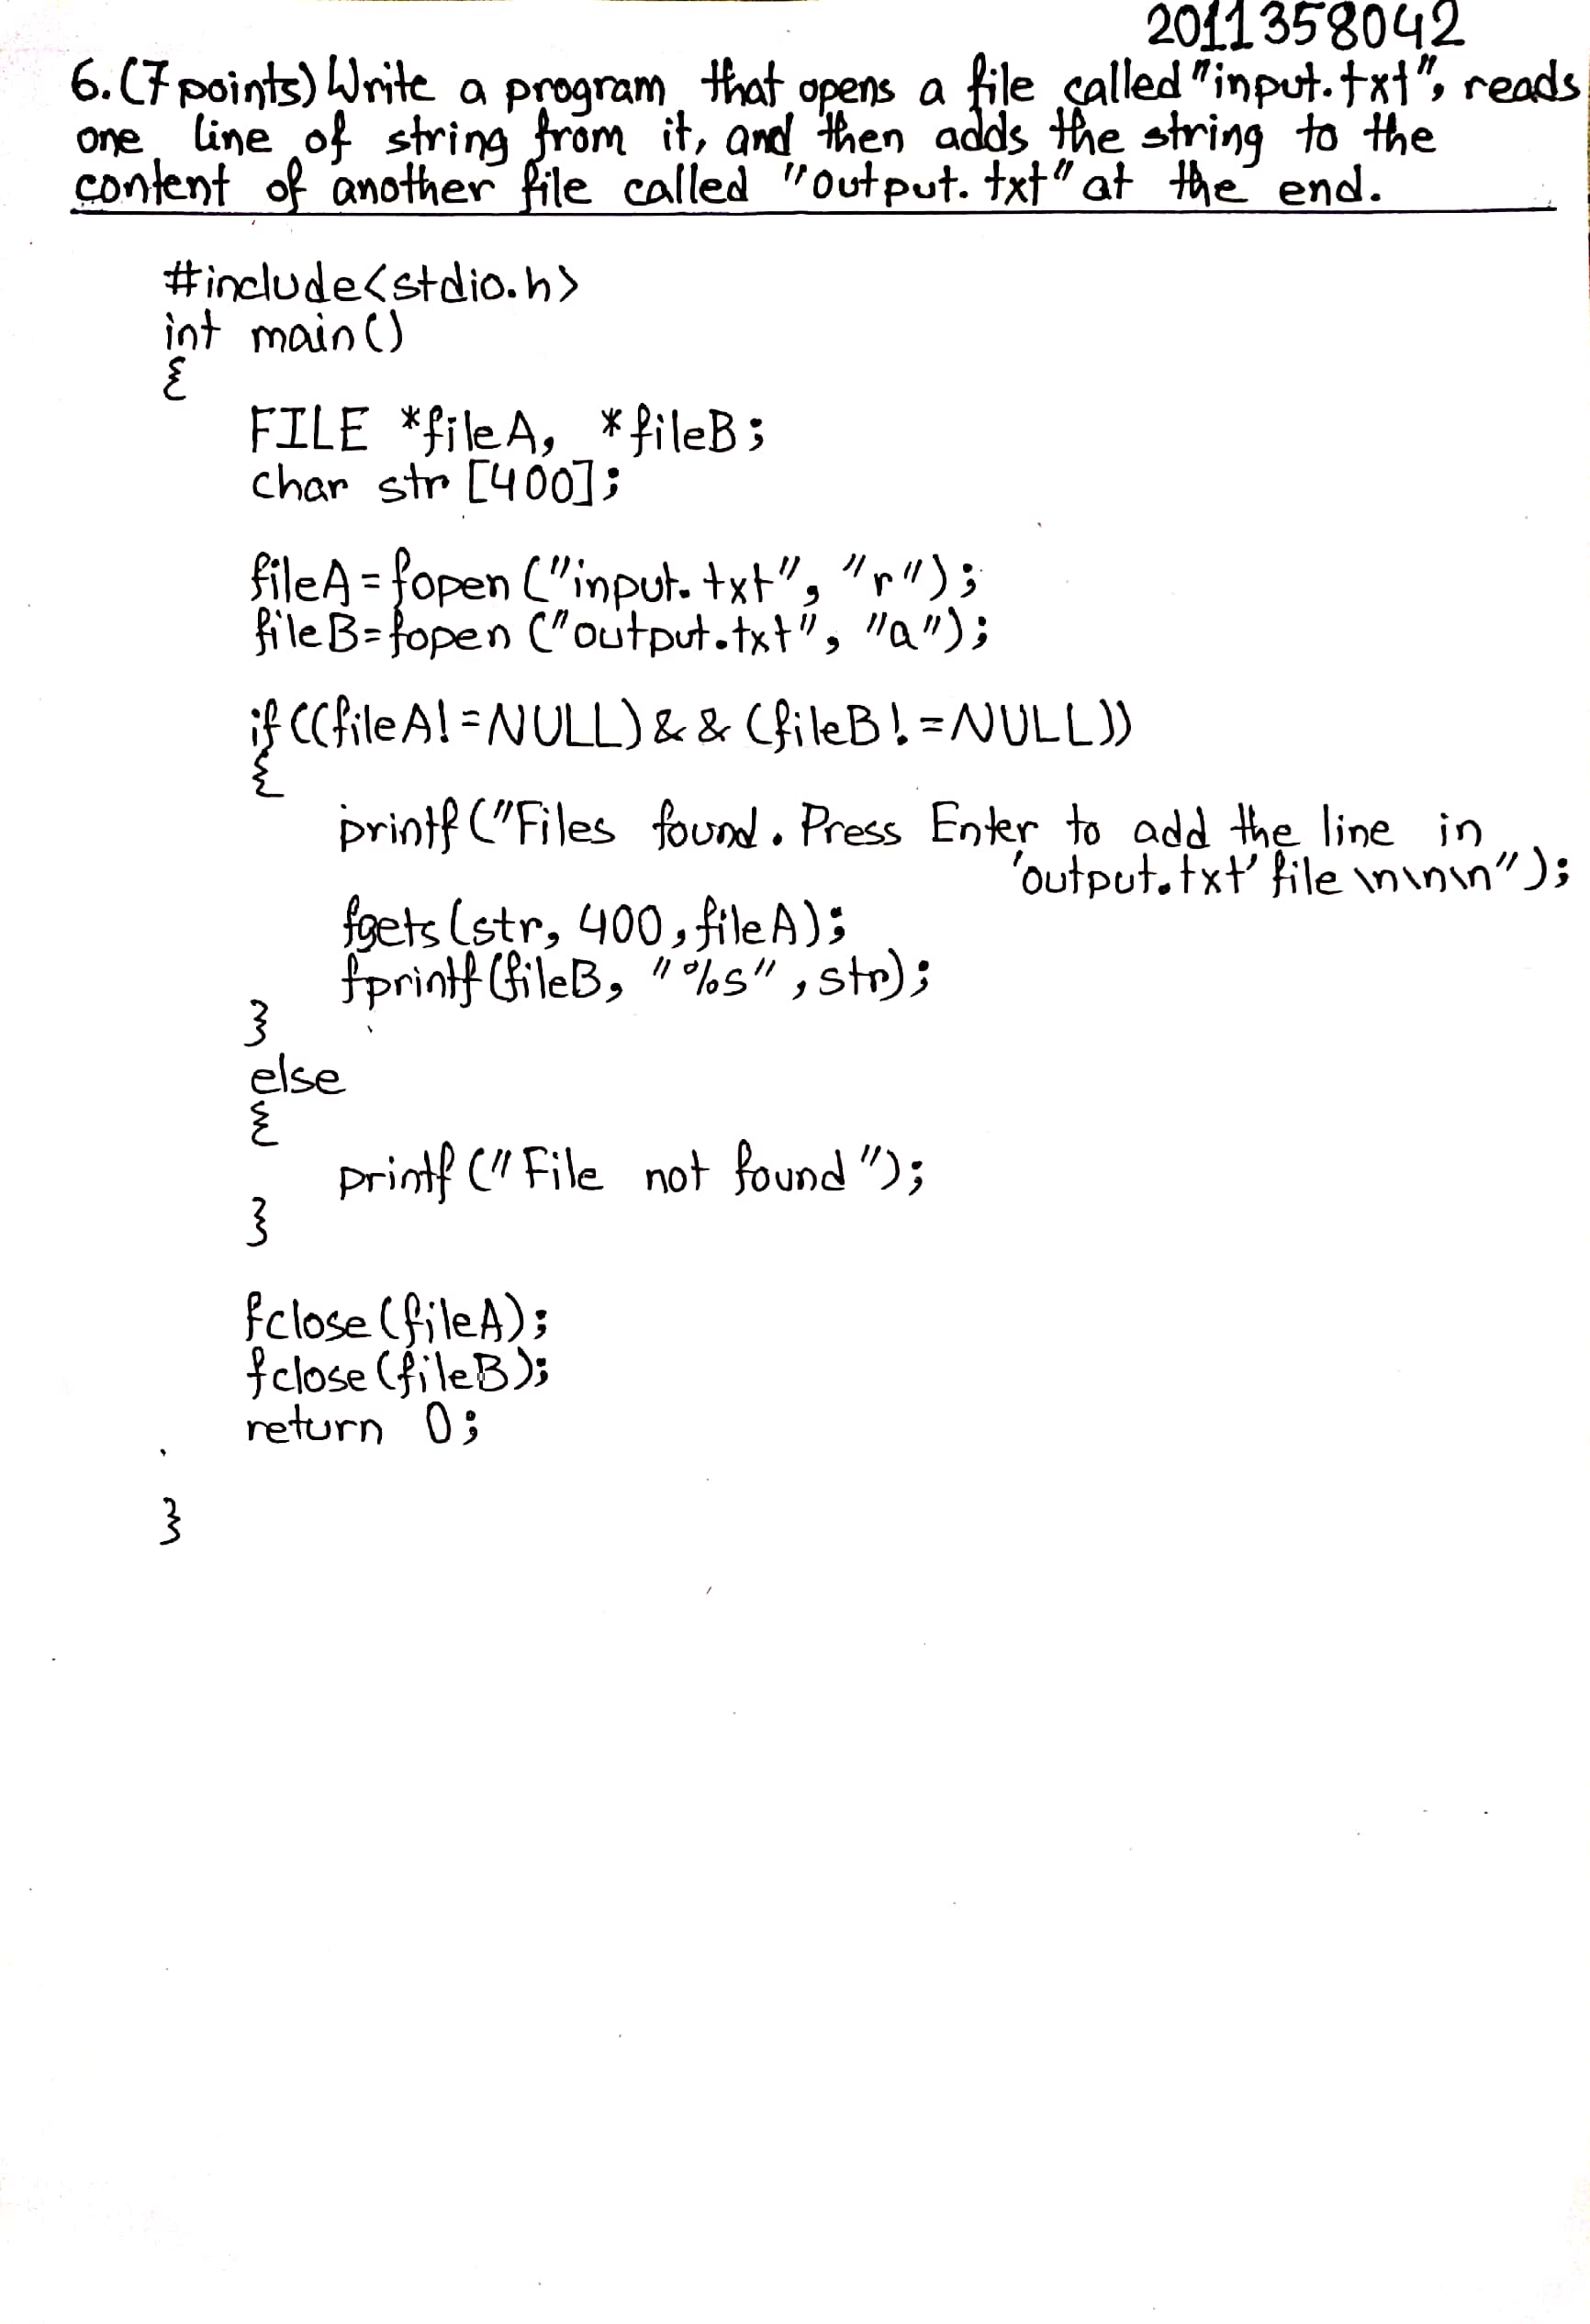 2011358042
6. (7 points) Write a program that opens a file called "input.txt", reads
one line of string from it, and then adds the string to the
content of another file called "output.txt" at the end.
#include<stdio.h>
int main()
{
FILE *fileA, *fileB;
char str [400];
fileA = fopen ("input.txt", "r");
fileB = fopen ("output.txt", "a");
if ((fileA! = NULL) && (fileB! = NULL))
{
printf ("Files found. Press Enter to add the line in
'output.txt' file \n\n\n");
fgets (str, 400, fileA);
fprintf (fileB, "%s", str);
}
else
{
printf ("File not found");
}
fclose (fileA);
fclose (fileB);
return 0;
}